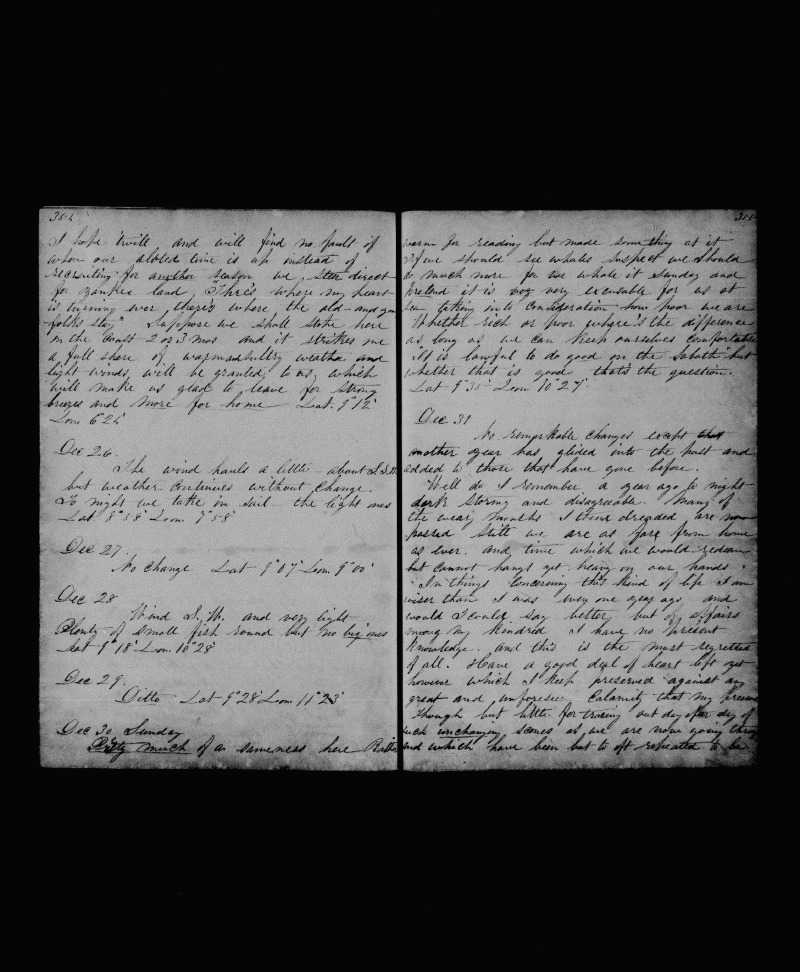 354
I hope t'will and will find no fault if
when our alloted time is up instead of
recruiting for another season we steer direct
for yankee land "Thre's where my heart
is turning ever, there's where the old and
folks stay" Suppose we shall stop here
on the Coast 2 or 3 mos and it strikes me
a full share of warm and sultry weather and
light winds, will be granted to us, which
will make us glad to leave for strong
breezes and more for home Lat. 9°12'
Lon 6°24'
Dec 26.
The wind hauls a little about S.S.W.
but weather continues without change.
To night we take in sail the light ones
Lat 8°58' Lon 7°58'
Dec 27.
No change Lat 9°07' Lon 9°00'
Dec 28
Wind S.W. and very light
Plenty of small fish round but no big ones
Lat 9°18' Lon 10°28'
Dec 29.
Ditto Lat 9°28' Lon 11°23'
Dec 30. Sunday
Pretty much of a sameness here
355
warm for reading but made some thing at it
If we should see whales suspect we should
do much more for we whale it Sunday and
pretend it is very excusable for us at
sea taking into consideration how poor we are
Whether rich or poor where's the difference
as long as we can keep ourselves comfortable
"It is lawful to do good on the Sabath" but
whether that is good that's the question.
Lat 9°35' Lon 10°27'
Dec 31
No remarkable changes except that
another year has glided into the past and
added to those that have gone before.
Well do I remember, a year ago to night
dark storming and disagreeable. Many of
the wear months I then dreaded are now
passed still we are as fare from home
as ever. and time which we would redeem
but cannot hangs yet heavy on our hands.
In things concerning this kind of life I am
wiser than I was even one year ago and
would I could say better but of affairs
among my kindred I have no present
knowledge. and this is the most regretted
of all. Have a good deal of heart left yet
however which I keep preserved against any
great and unforeseen Calamity that my
though but little for traveling out day after day of
such unchanging scenes as we are now going thro
and which have been but to oft repeated to be